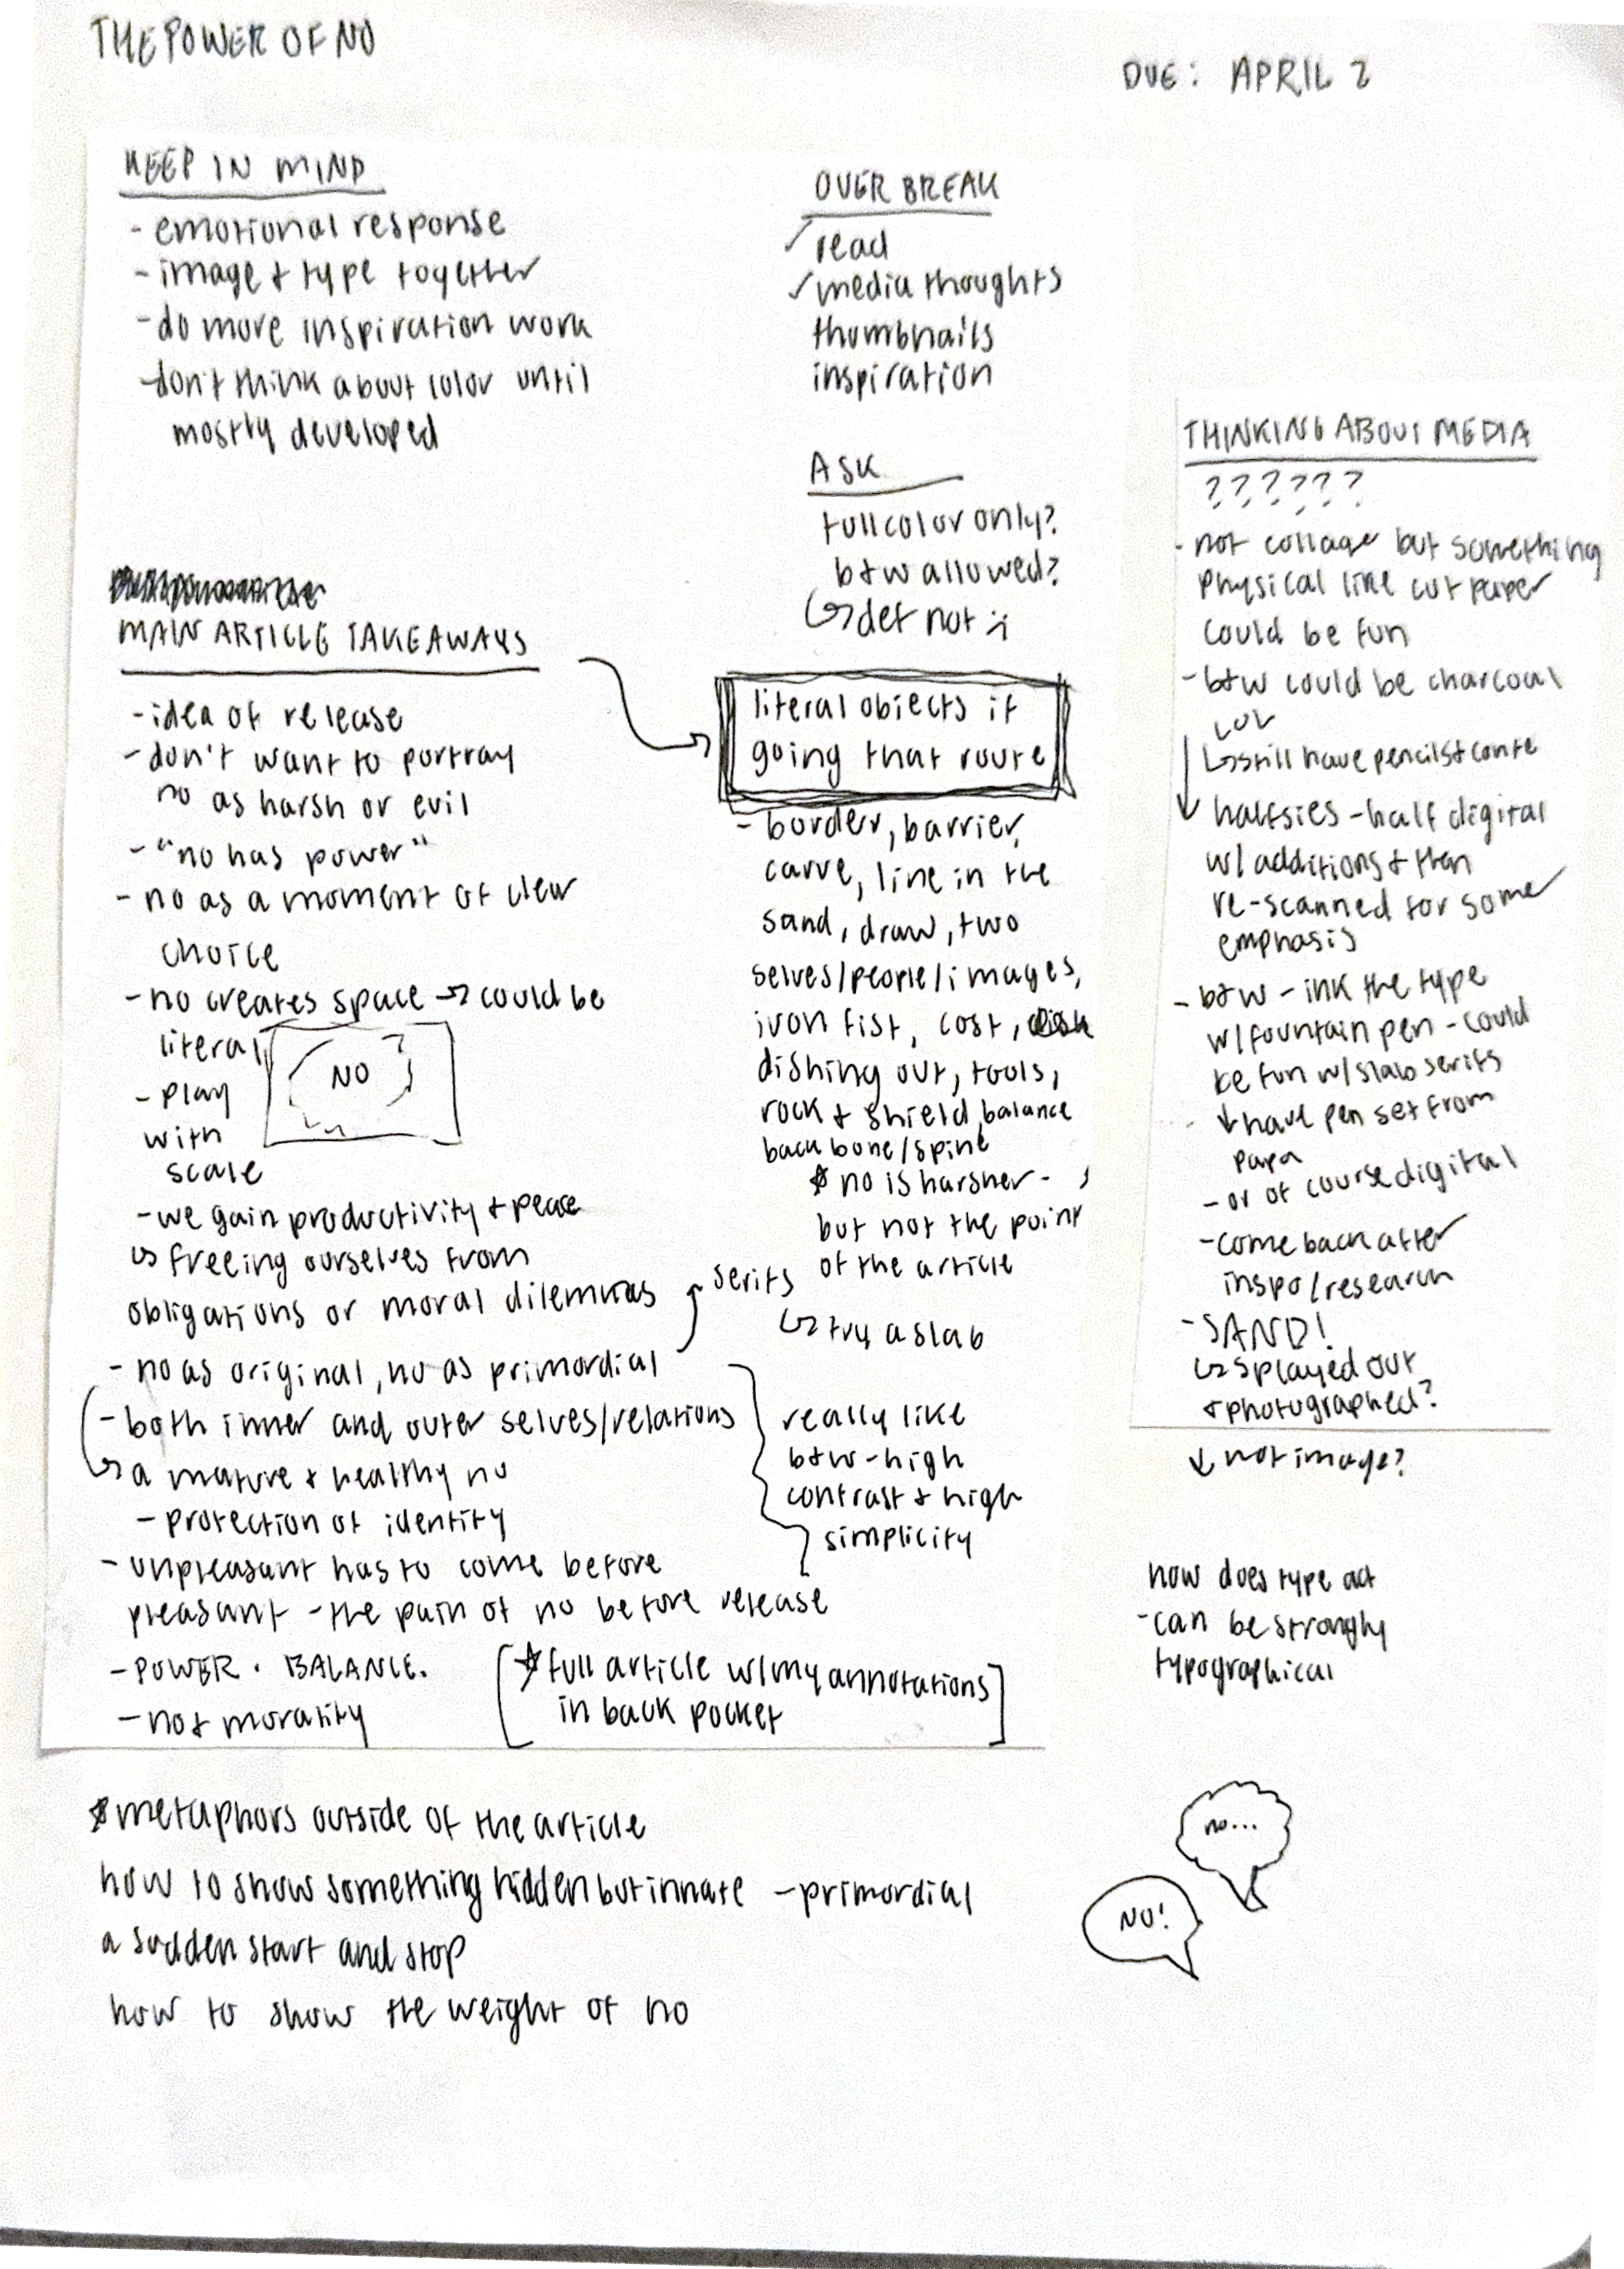 THE POWER OF NO
DUE: APRIL 2
KEEP IN MIND
- emotional response
- image + type together
- do more inspiration work
- don't think about color until
mostly developed
OVER BREAK
✓ read
✓ media thoughts
thumbnails
inspiration
ASK
full color only?
b+w allowed?
↳ def not :(
MAIN ARTICLE TAKEAWAYS
- idea of release
- don't want to portray
no as harsh or evil
- "no has power"
- no as a moment of clear
choice
- no creates space → could be
literal
NO
- play
with
scale
- we gain productivity + peace
↳ freeing ourselves from
obligations or moral dilemmas
- no as original, no as primordial
serifs
- both inner and outer selves/relations
↳ a mature + healthy no
- protection of identity
- unpleasant has to come before
pleasant - the pain of no before release
- POWER . BALANCE.
- not morality
literal objects if
going that route
- border, barrier,
carve, line in the
sand, draw, two
selves/people/images,
iron fist, cost,
dishing out, tools,
rock + shield, balance
back bone/spine
☆ no is harsher -
but not the point
of the article
↳ try a slab
really like
b+w - high
contrast + high
simplicity
[☆ full article w/my annotations
in back pocket]
THINKING ABOUT MEDIA
? ? ? ? ? ?
- not collage but something
physical like cut paper
could be fun
- b+w could be charcoal
LOL
↳ still have pencils + conte
↓ halfsies - half digital
w/ additions + then
re-scanned for some
emphasis
- b+w - ink the type
w/ fountain pen - could
be fun w/ slab serifs
↓ have pen set from
papa
- or of course digital
- come back after
inspo/research
- SAND!
↳ splayed out
+ photographed?
↓ not image?
how does type act
- can be strongly
typographical
☆ metaphors outside of the article
how to show something hidden but innate - primordial
a sudden start and stop
how to show the weight of no
no...
NO!